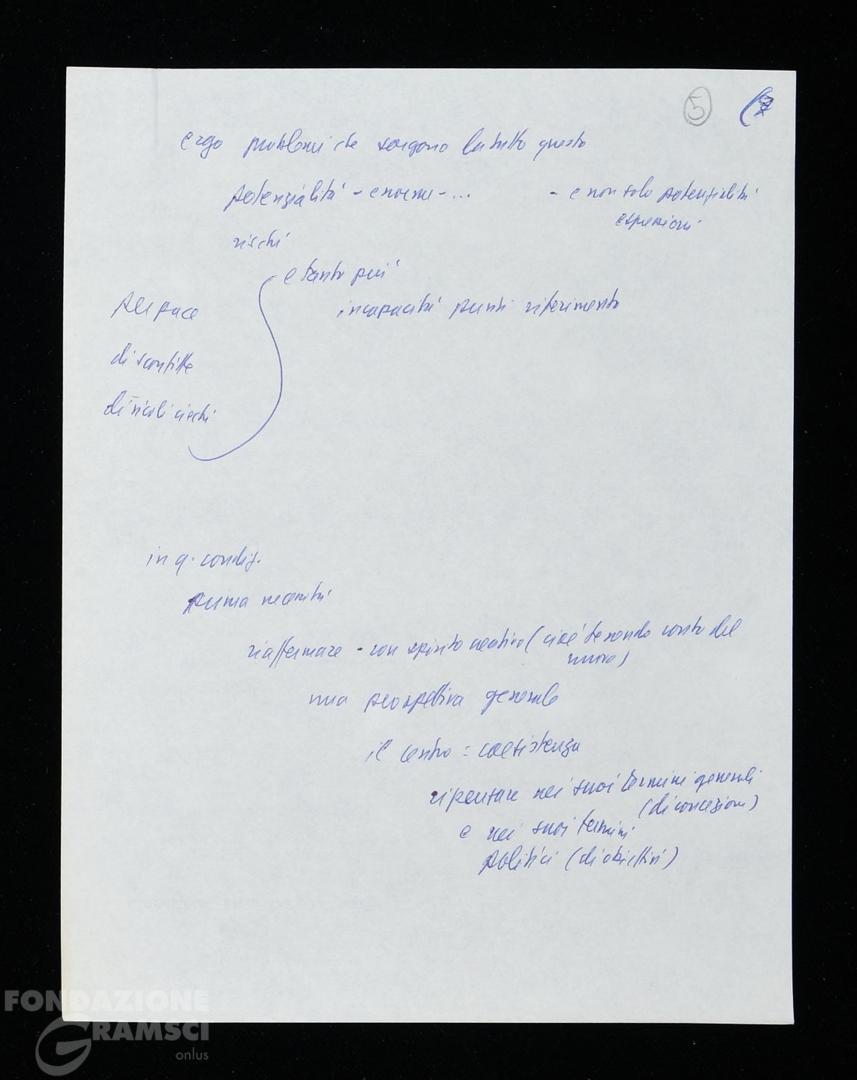 5
ergo problemi che sorgono da tutto questo
potenzialità - enormi - ... - e non solo potenzialità
espressioni
rischi
e tanto più
incapacità punti riferimento
per pace
di sconfitte
di vicoli ciechi
in q. condiz.
prima necessità
riaffermare - con spirito creativo (cioè tenendo conto del
nuovo)
una prospettiva generale
il centro = coesistenza
ripensare nei suoi termini generali
(di concezioni)
e nei suoi termini
politici (di obiettivi)
FONDAZIONE
GRAMSCI
onlus